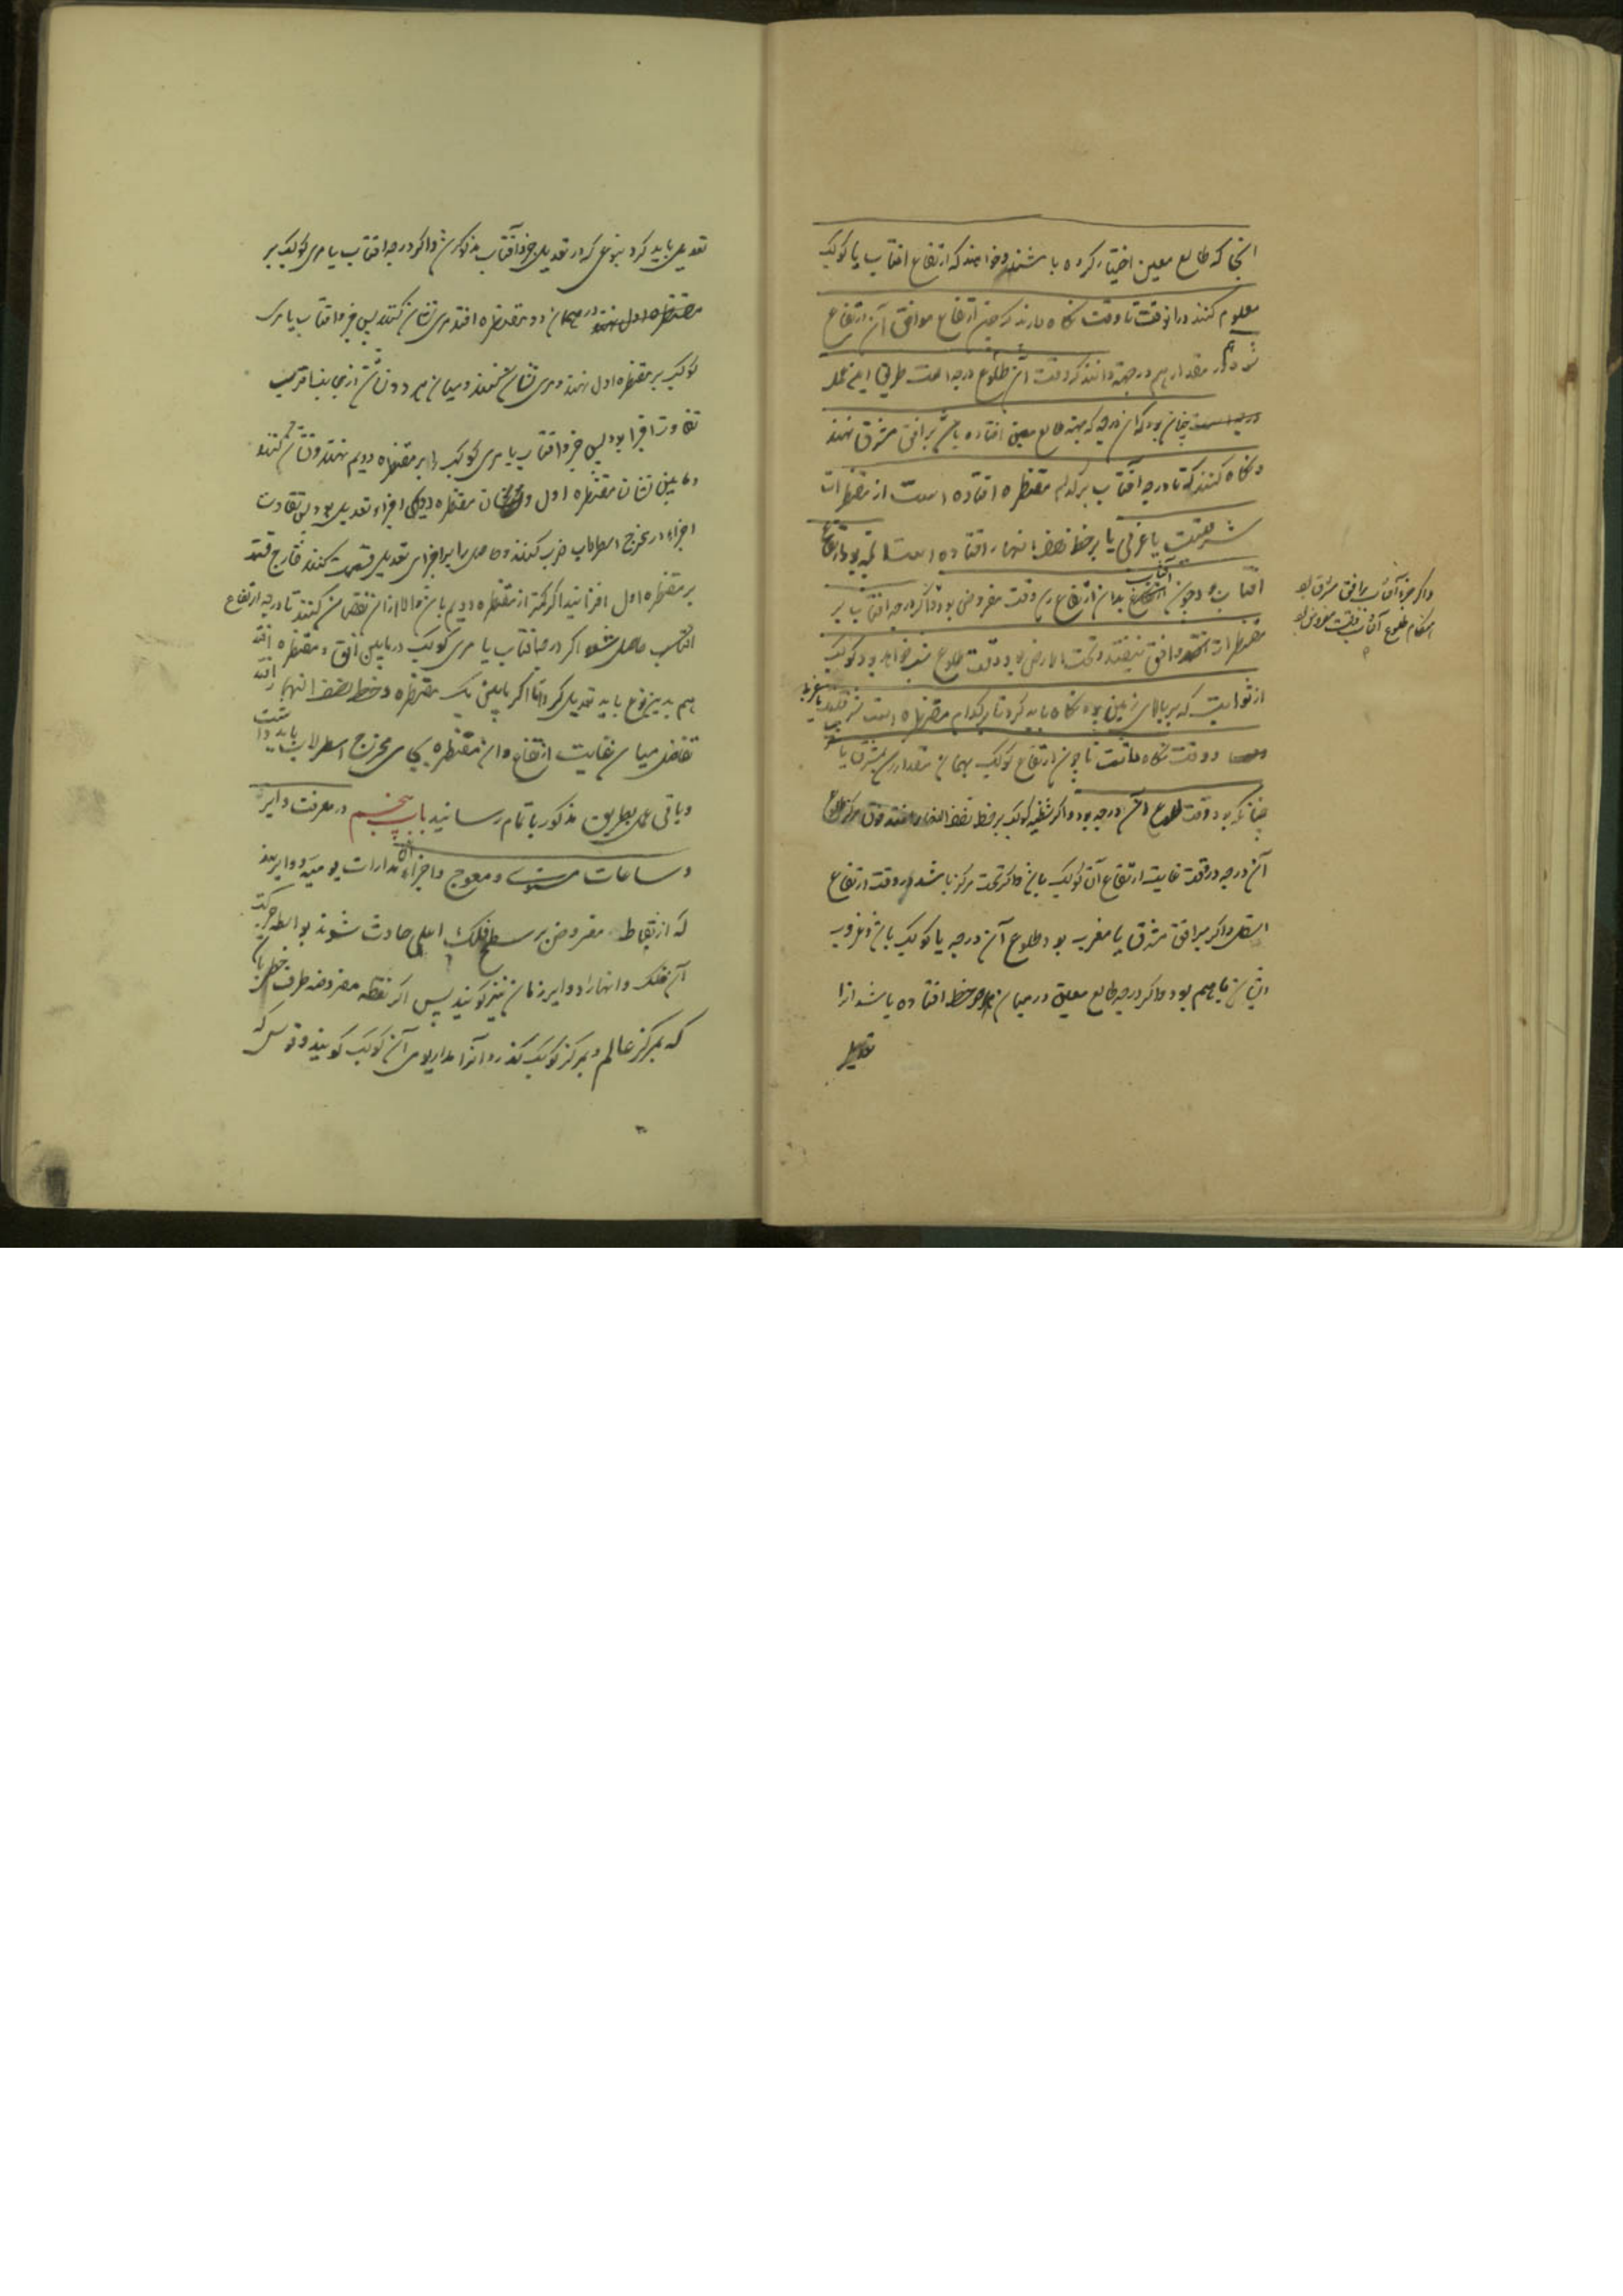 انجا که طالع معین اختیار کرده باشند و خواهند که ارتفاع افتاب یا کوکب
معلوم کنند در انوقت تا وقت نکاه دارند که چون ارتفاع موافق آن ارتفاع
شود مقدار هم در جهة دانند که وقت آن طلوع درجه است طریق این عمل
چنان بود که آن درجه که بجهة طالع معین افتاده باشد بر افق مشرق نهند
و نکاه کنند که تا درجه آفتاب بر کدام مقنطره افتاده است از مقنطرات
شرقیست یا غربی یا بر خط نصف النهار افتاده است انچه بود ارتفاع
افتاب بود چون افتاب بدان ارتفاع رسد وقت مفروض بود و اکر درجه افتاب بر
مقنطرات و افق نیفتد و تحت الارض بود وقت طلوع شب خواهد بود کوکب
از ثوابت که بر بالای زمین بود نکاه باید کرد تا بر کدام مقنطره است شرقی یا غربی
وقت نکاه داشت تا چون ارتفاع کوکب بهمان مقدار رسد بمشرق یا
چنانکه بود وقت طلوع آن درجه بود و اکر شظیه کوکب بر خط نصف النهار افتد فوق مرکز طلوع
آن درجه در وقت غایت ارتفاع آن کوکب باشد و اکر تحت مرکز باشد در وقت ارتفاع
اسفل و اکر بر افق مشرق یا مغرب بود طلوع آن درجه یا کوکب باشد و غروب
ایشان با هم بود و اکر درجه طالع معین در میان دو خط افتاده باشد انرا
تعدیل
و اکر جزء آفتاب بر افق مشرق بود
هنکام طلوع آفتاب وقت مفروض بود
تعدیل باید کرد بنوعی که در تعدیل جزء آفتاب مذکور شد و اکر درجه افتاب یا مری کوکب بر
میان دو مقنطره افتد مری نشان کنند پس جزء افتاب یا مری
کوکب بر مقنطره اول نهند و مری نشان کنند و میان هر دو نشان از جانب اقرب
تفاوت اجزا بود پس جزء افتاب یا مری کوکب را بر مقنطره دویم نهند و نشان کنند
و مابین نشان مقنطره اول و نشان مقنطره دویم اجزاء تعدیل بود پس تفاوت
اجزا در مخرج اسطرلاب ضرب کنند و حاصل را بر اجزای تعدیل قسمت کنند خارج قسمت
بر مقنطره اول افزایند اکر کمتر از مقنطره دویم باشد و الا از آن نقصان کنند تا درجه ارتفاع
افتاب حاصل شود اکر درجه افتاب یا مری کوکب در مابین افق و مقنطره افتد
هم بدین نوع باید تعدیل کرد و اما اکر مابین یک مقنطره و خط نصف النهار افتد
تفاضل میان غایت ارتفاع و ان مقنطره بجای مخرج اسطرلاب باید داشت
و باقی عمل بطریق مذکور باتمام رسانید باب پنجم در معرفت دایر
و ساعات مستوی و معوج و اجزاء آن مدارات یومیه دوایریند
که از نقاط مفروض بر سطح فلک اعلی حادث شوند بواسطه حرکت
آن فلک و انها را دوایر زمان نیز کویند پس اکر نقطه مفروضه طرف خطی باشد
که بمرکز عالم و بمرکز کوکب کذرد آنرا مدار یومی آن کوکب کویند و قوس که